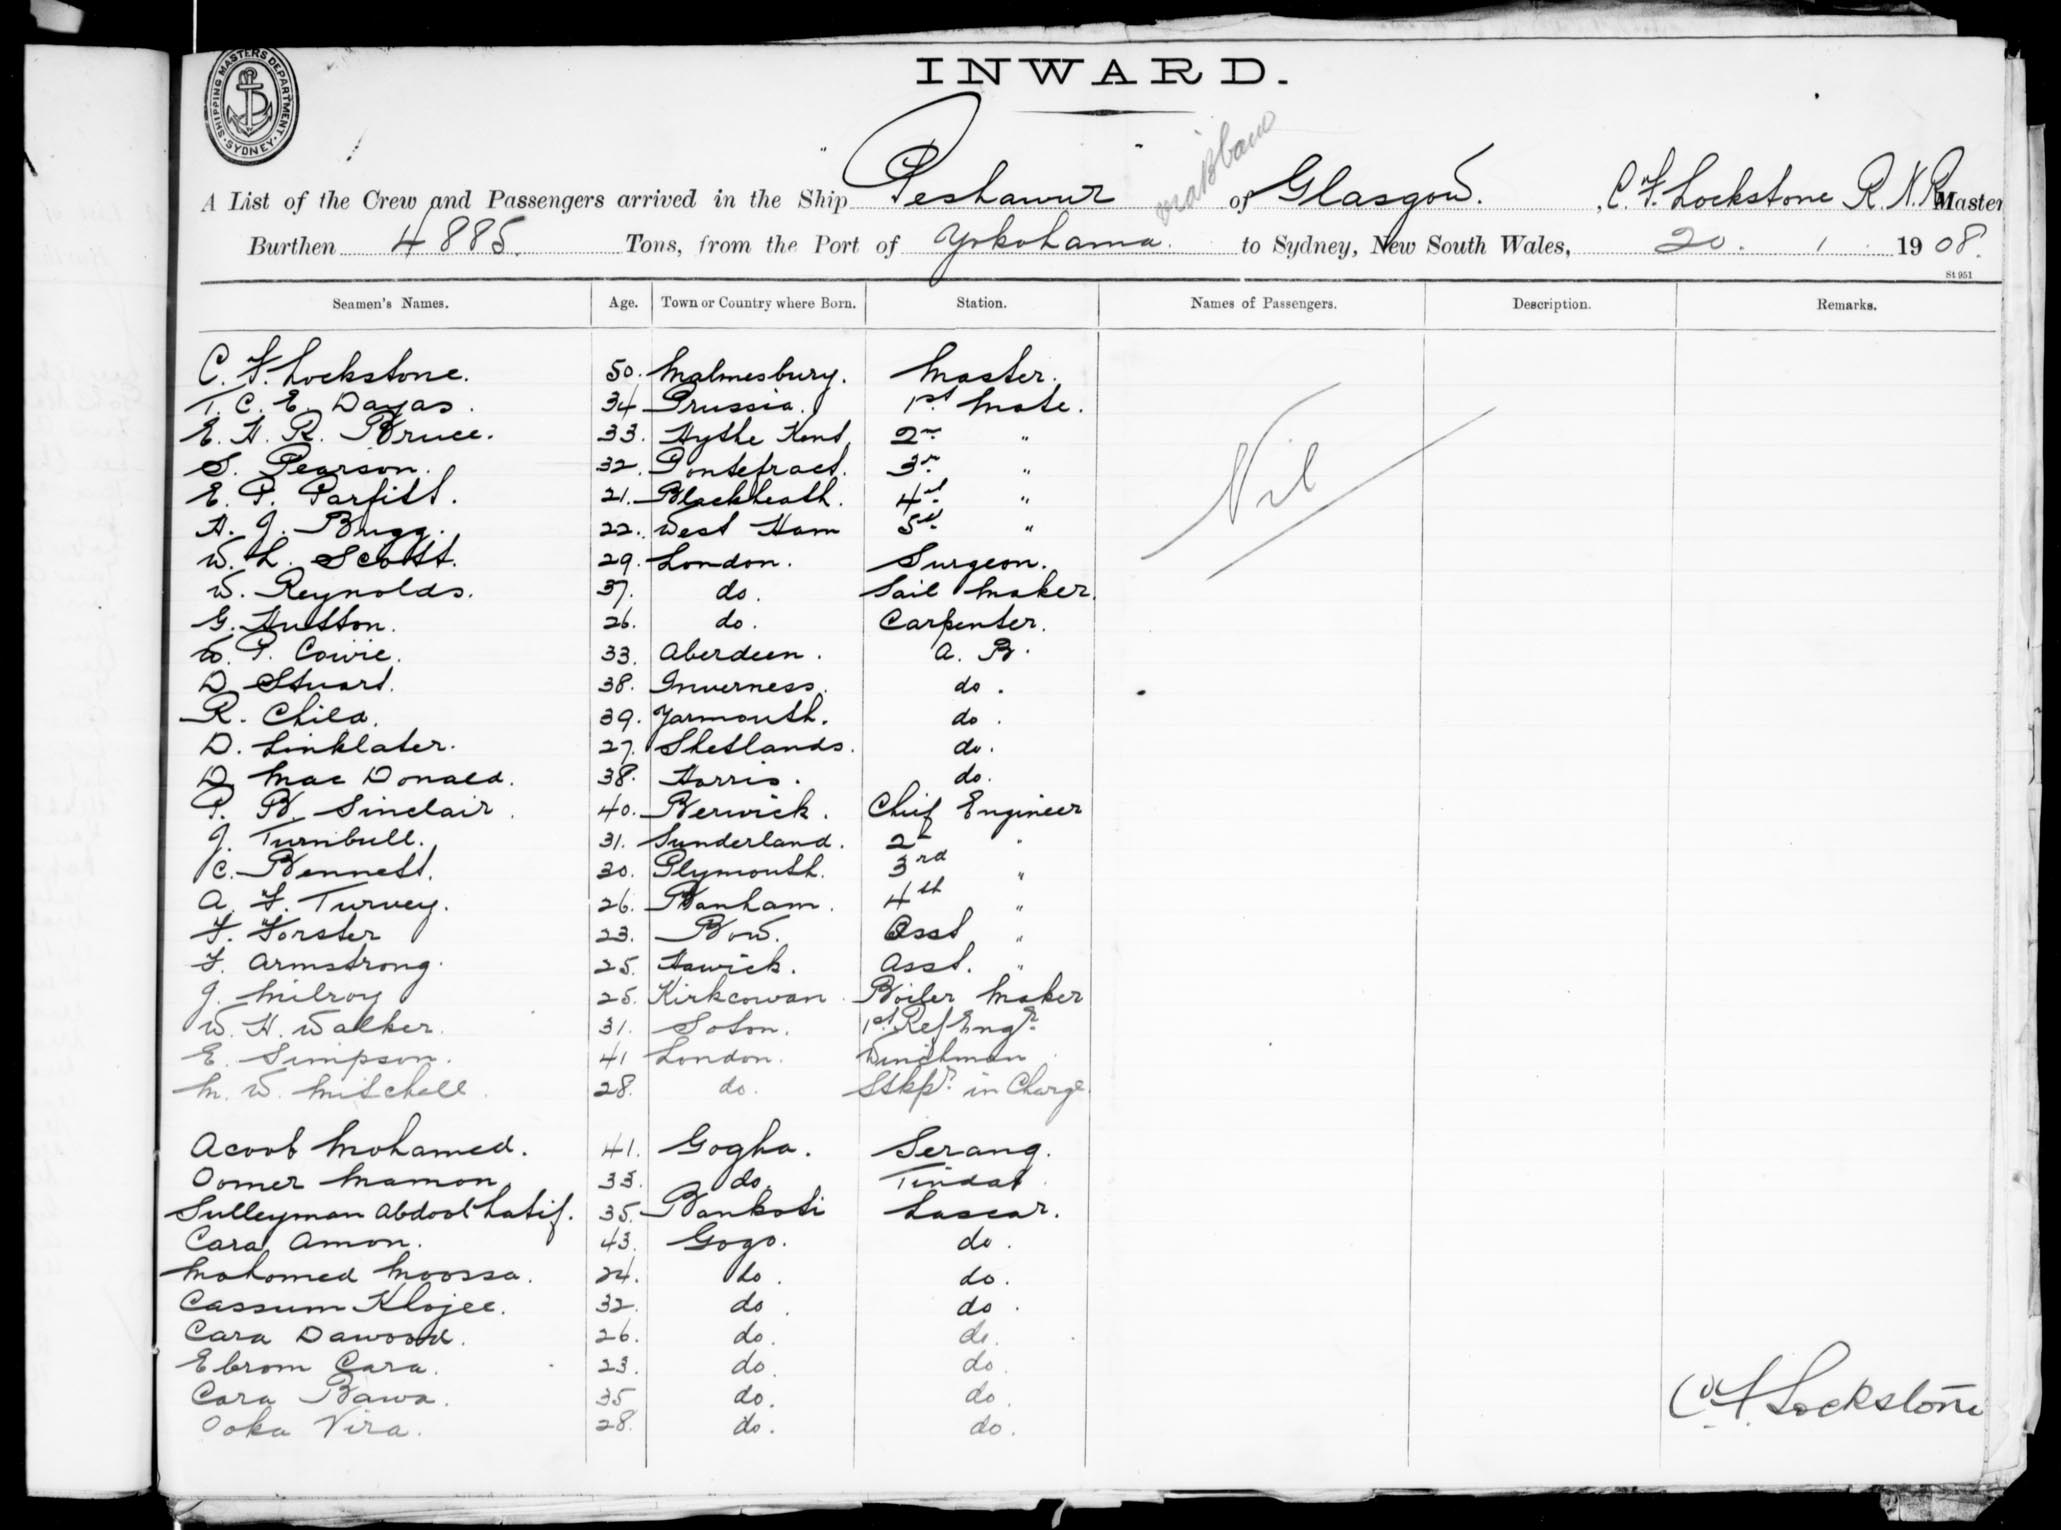 SHIPPING MASTERS DEPARTMENT · SYDNEY ·
INWARD.
A List of the Crew and Passengers arrived in the Ship "Peshawur" of Glasgow. , C. F. Lockstone R.N.R. Master
Burthen 4885. Tons, from the Port of Yokohama. to Sydney, New South Wales, 20. 1 1908.
St 951
Seamen's Names. Age. Town or Country where Born. Station. Names of Passengers. Description. Remarks.
C. F. Lockstone. 50. Malmesbury. Master.
T. C. E. Dayas. 34 Prussia. 1st Mate. Nil
E. H. R. Bruce. 33. Hythe Kent 2nd "
S. Pearson. 32. Pontefract. 3rd "
E. P. Parfitt. 21. Blackheath. 4th "
H. J. Brigg. 22. West Ham 5th "
W. L. Scott. 29. London. Surgeon.
W. Reynolds. 37. do. Sail Maker.
G. Hutton. 26. do. Carpenter.
W. P. Cowie. 33. Aberdeen. A. B.
D. Stuart. 38. Inverness. do.
R. Child. 39. Yarmouth. do.
D. Linklater. 27. Shetlands. do.
D. Mac Donald. 38. Harris. do.
P. B. Sinclair. 40. Berwick. Chief Engineer
J. Turnbull. 31. Sunderland. 2nd "
C. Bennett. 30. Plymouth. 3rd "
A. F. Turvey. 26. Banham. 4th "
F. Forster 23. Bow. Asst "
F. Armstrong. 25. Hawick. Asst. "
J. Milroy 25. Kirkcowan. Boiler Maker
W. H. Walker. 31. Soton. 1st Ref Engr.
E. Simpson. 41 London. Winchman
M. W. Mitchell. 28. do. Stkpr. in Charge.
Acoob Mohamed. 41. Gogha. Serang.
Oomer Mamon 33. do. Tindal.
Sulleyman Abdool Latif. 35. Bankoti Lascar.
Cara Amon. 43. Gogo. do.
Mahomed Moossa. 24. do. do.
Cassum Khojee. 32. do. do.
Cara Dawood. 26. do. do.
Ebrom Cara. 23. do. do.
Cara Bawa. 35 do. do. C F Lockstone
Ooka Vira. 28. do. do.